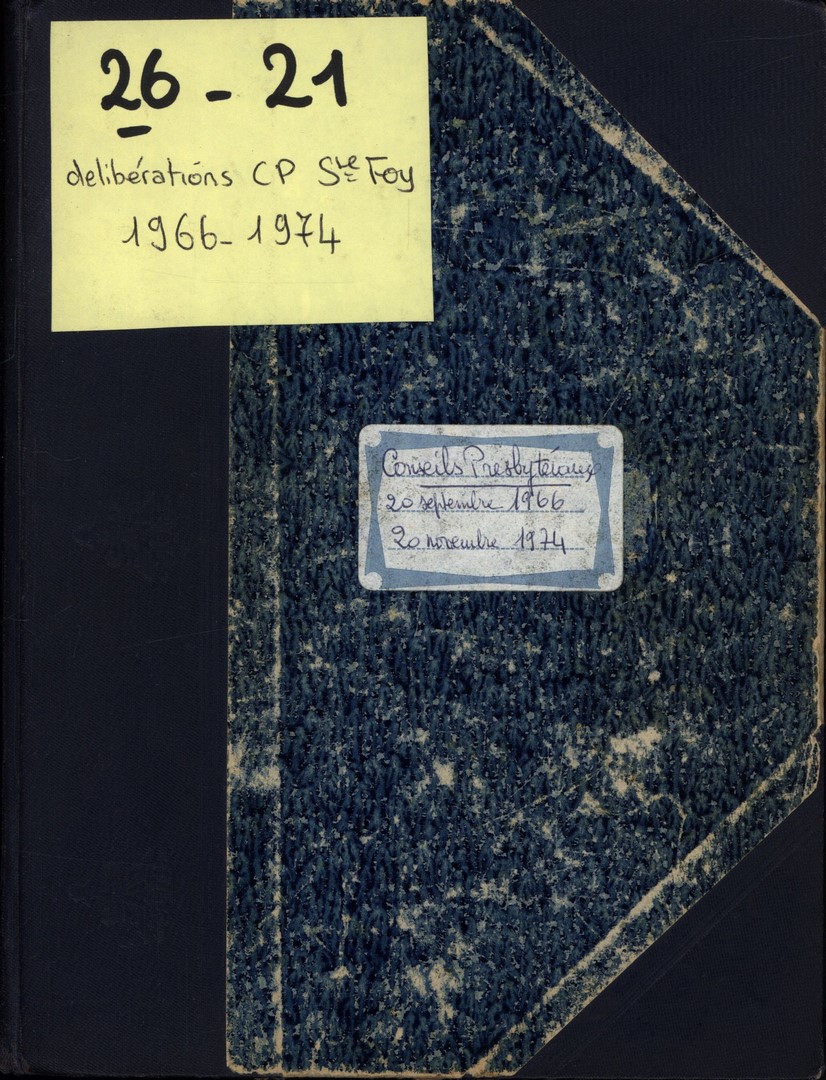 26 - 21
delibérations CP Ste Foy
1966 - 1974
Conseils Presbytéraux
20 septembre 1966
20 novembre 1974